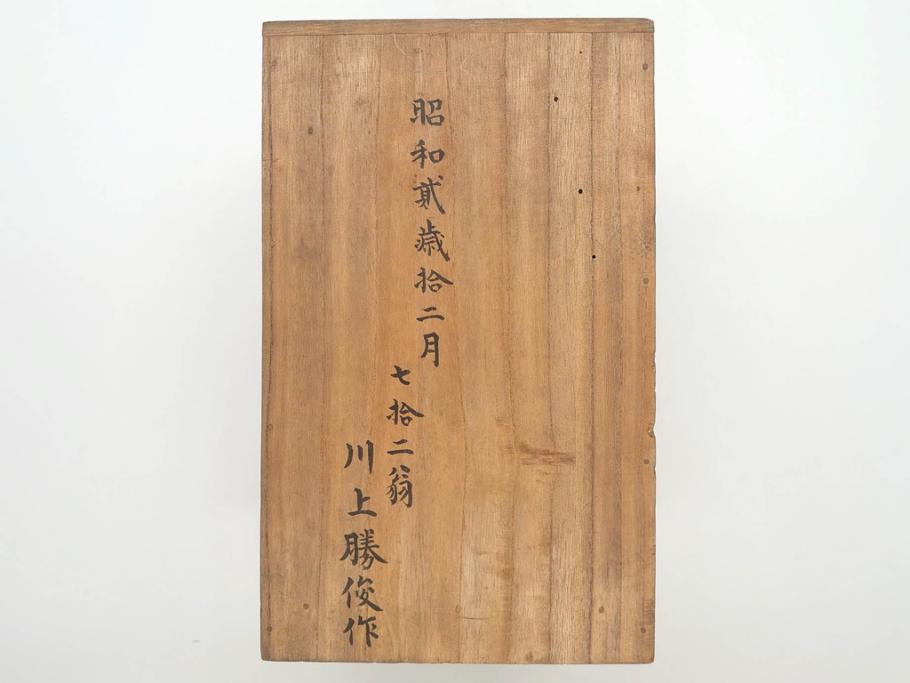 昭和貳歳拾二月
七拾二翁
川上勝俊作